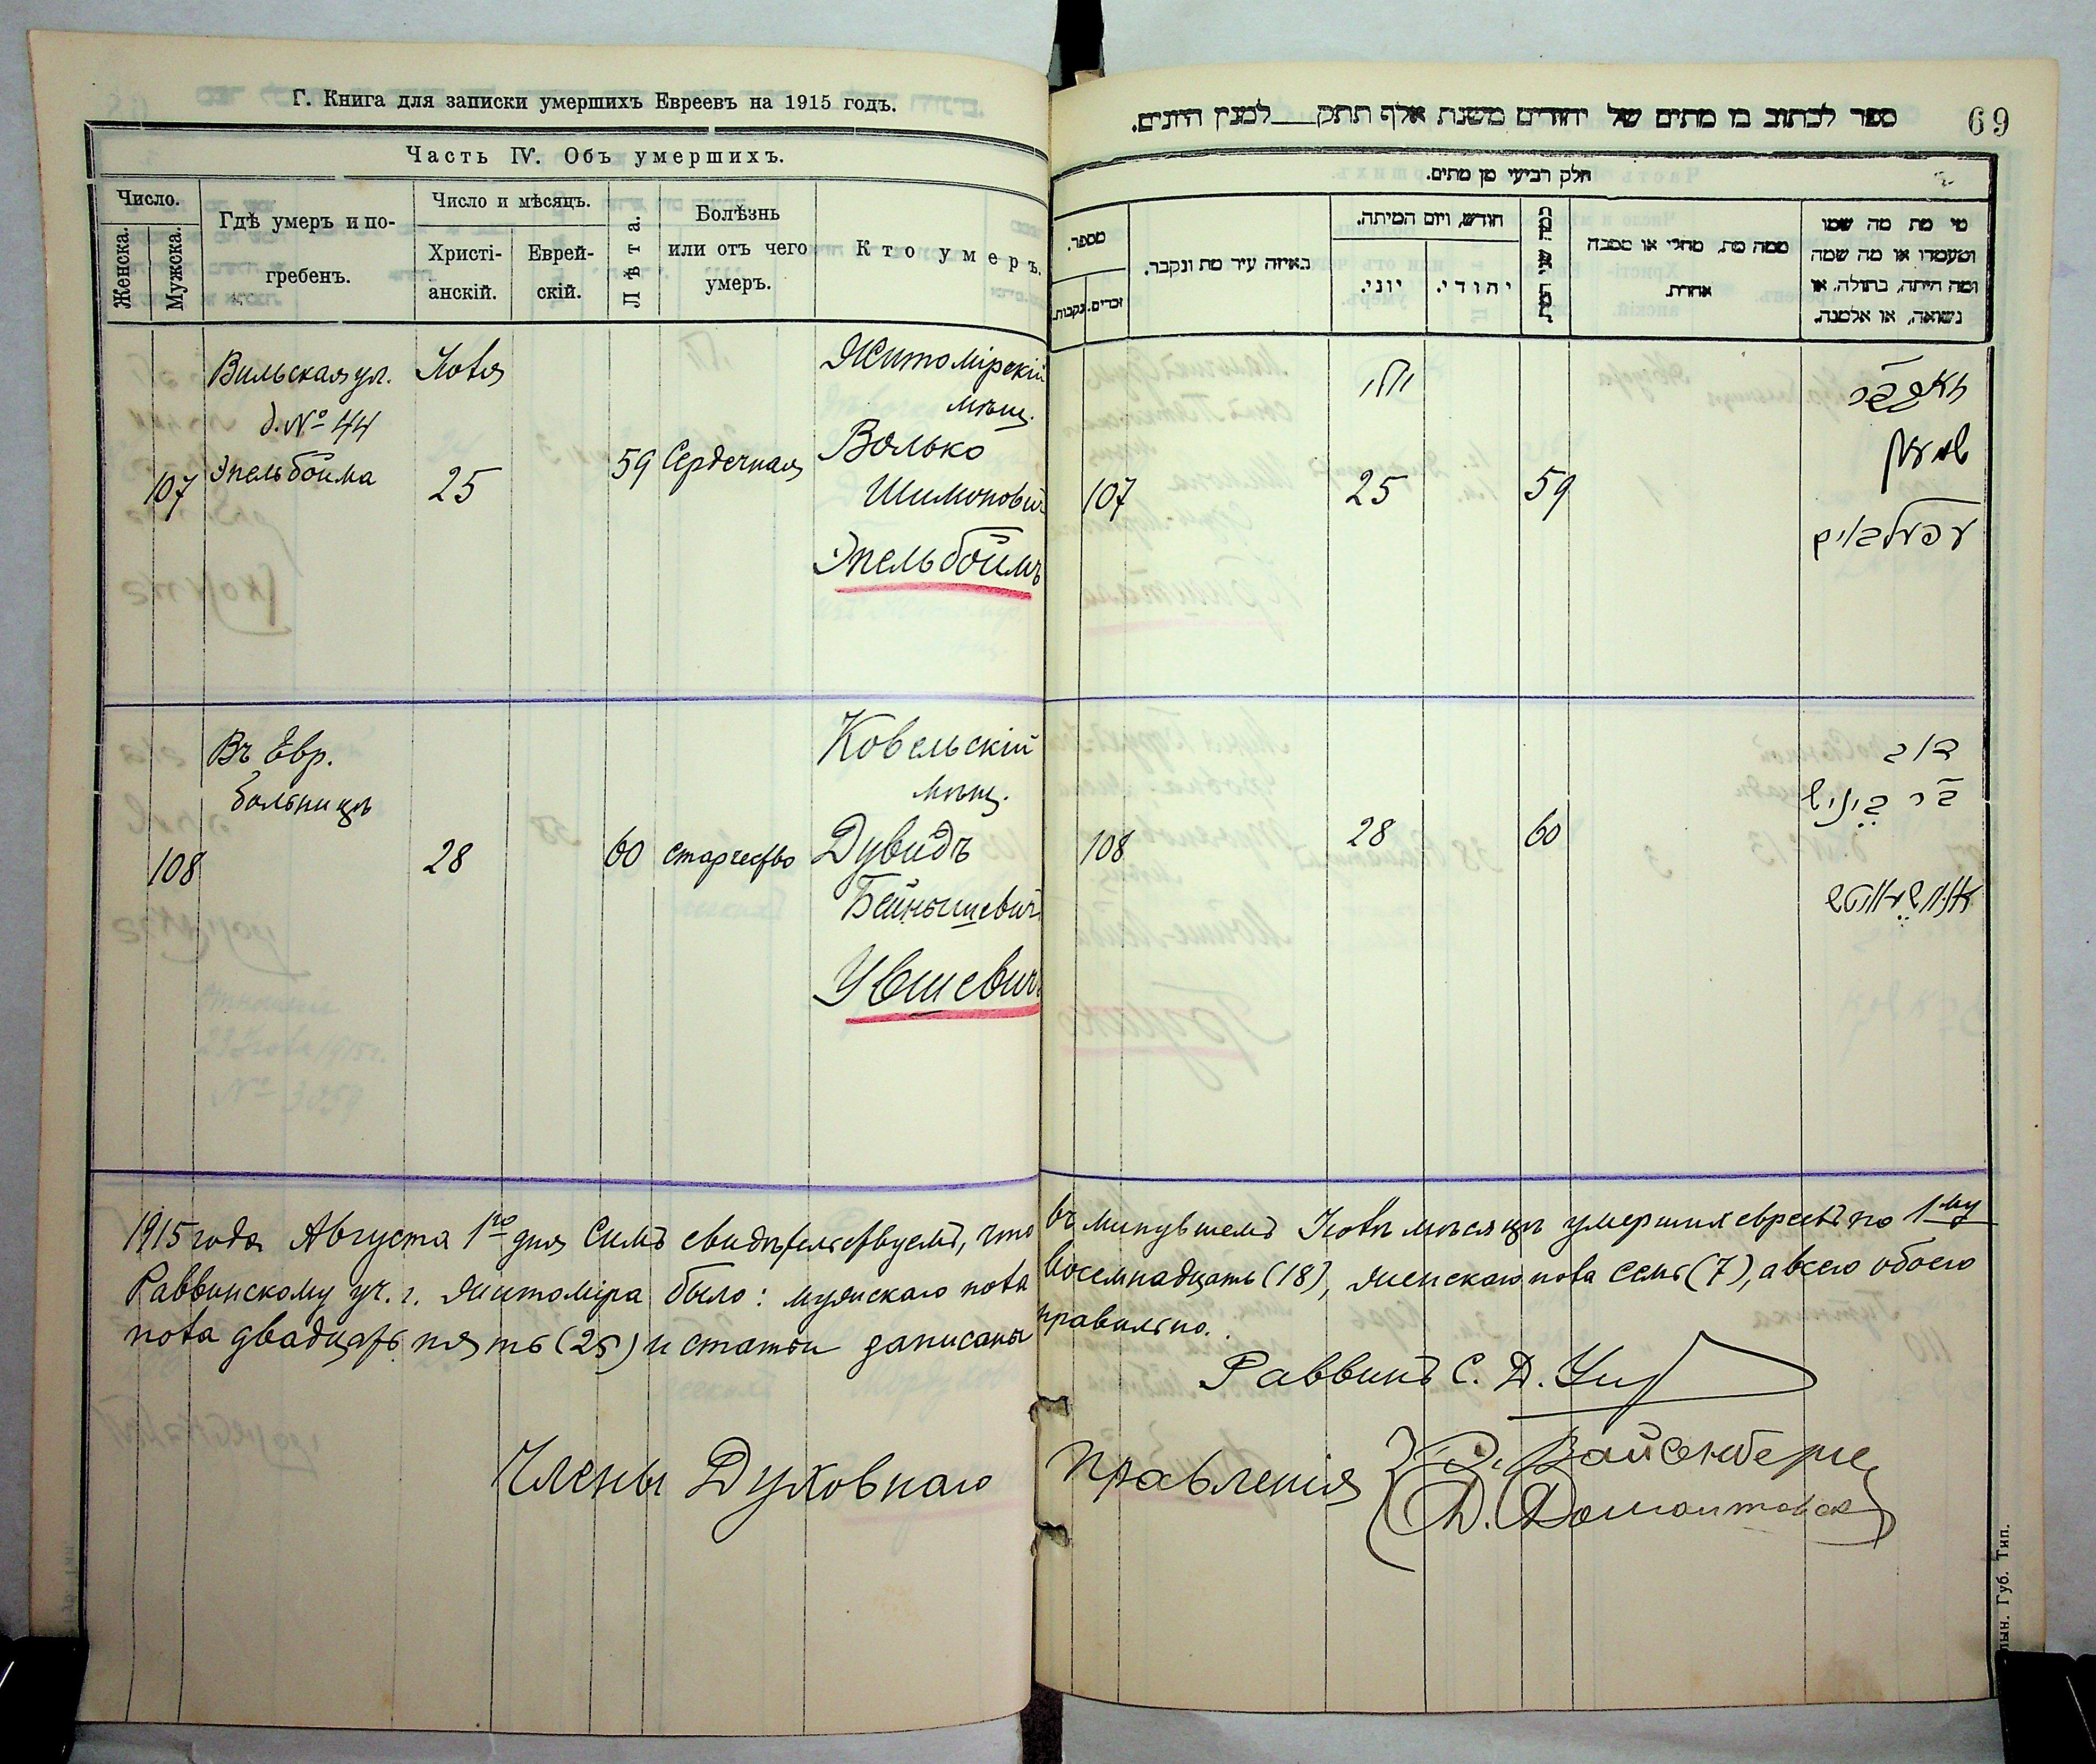 Г. Книга для записки умершихъ Евреевъ на 1915 годъ.
Часть IV. Объ умершихъ.
Число.
Женска.
Мужска.
Гдѣ умеръ и по-
гребенъ.
Число и мѣсяцъ.
Христі-
анскій.
Еврей-
скій.
Лѣта.
Болѣзнь
или отъ чего
умеръ.
Кто умеръ.
Вильская ул.
д. № 44
Эпельбойма
107
Іюля
25
59
Сердечная
Житомірскій
мѣщ.
Волько
Шимонович
Эпельбоймъ
Въ Евр.
больницѣ
108
28
60
старчество
Ковельскій
мѣщ.
Дувидъ
Бейнышевич
Увшевичъ
1915 года Августа 1го дня Симъ свидѣтельствуемъ, что
Раввинскому уч. г. Житоміра было: мужскаго пола
пола двадцать пять (25) и статьи записаны
Члены Духовнаго
69
ספר לכתוב בו מתים של יהודים משנת אלף תתק למנין היונים.
חלק רביעי מן מתים.
מספר.
זכרים.
נקבות.
באיזה עיר מת ונקבר.
חודש, ויום המיתה.
יוני.
יהודי.
ממה מת, מחלי או מסבה
אחרת.
מי מת מה שמו
ומעמדו או מה שמה
ומה היתה, בתולה, או
נשואה, או אלמנה.
יולי
107
25
59
שמעון
עפעלבוים
108
28
60
דוד
בר ביינוש
въ минувшемъ Іюлѣ мѣсяцѣ умершихъ евреевъ по 1му
восемнадцать (18), женскаго пола семь (7), а всего обоего
правильно.
Раввинъ С. Д.
Правленія
Вайсенберг
Д.
лын. Губ. Тип.